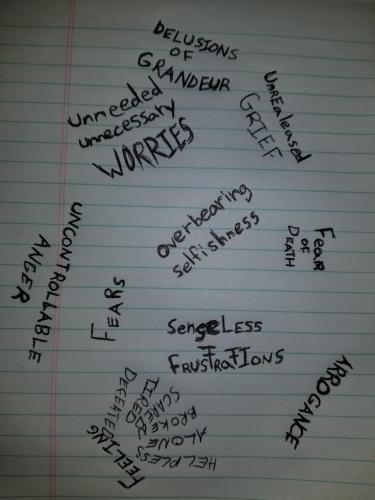 DELUSIONS
OF
GRANDEUR
unneeded
unnecessary
WORRIES
UnREaleased
GRIEF
overbearing
selfishness
Fear
OF
DEATH
UNCONTROLLABLE
ANGER
FEARS
SenseLess
FRUSTRATIONS
ARROGANCE
FEELING
DEFEATED
TIRED
SCARED
BROKE
ALONE
HELPLESS